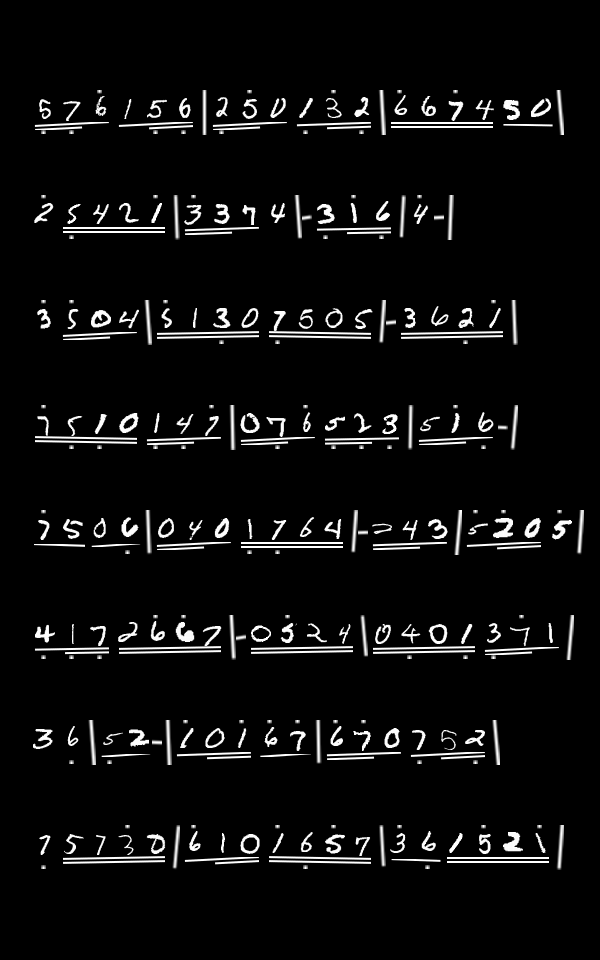 576156|250132|667450
25421|3374|-316|4-
3504|51307505|-3621
7510147|076523|516-
7506|0401764|-243|5205
4172667|-0524|0401371
36|52-|10167|670752
75730|6101657|361521